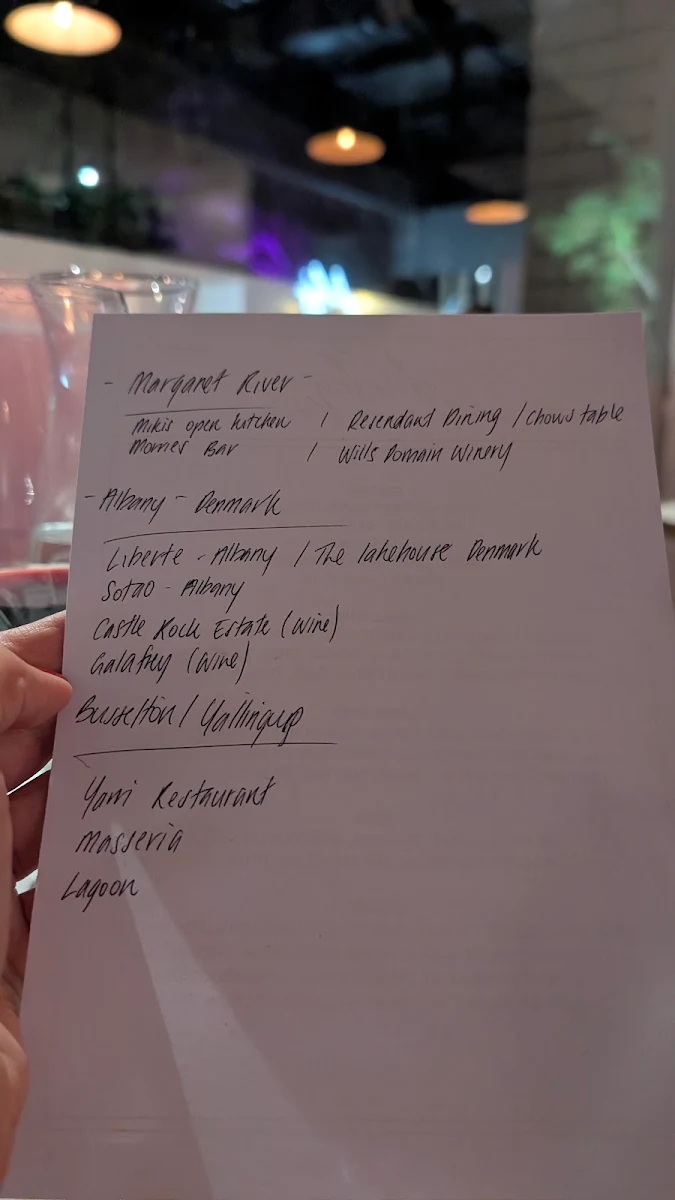 - Margaret River -
Mikis open kitchen / Resendant Dining / Chows table
Morries Bar / Wills Domain Winery
- Albany - Denmark
Liberte - Albany / The lakehouse Denmark
Sotao - Albany
Castle Rock Estate (wine)
Galafrey (wine)
Busselton / Yallingup
Yarri Restaurant
Masseria
Lagoon